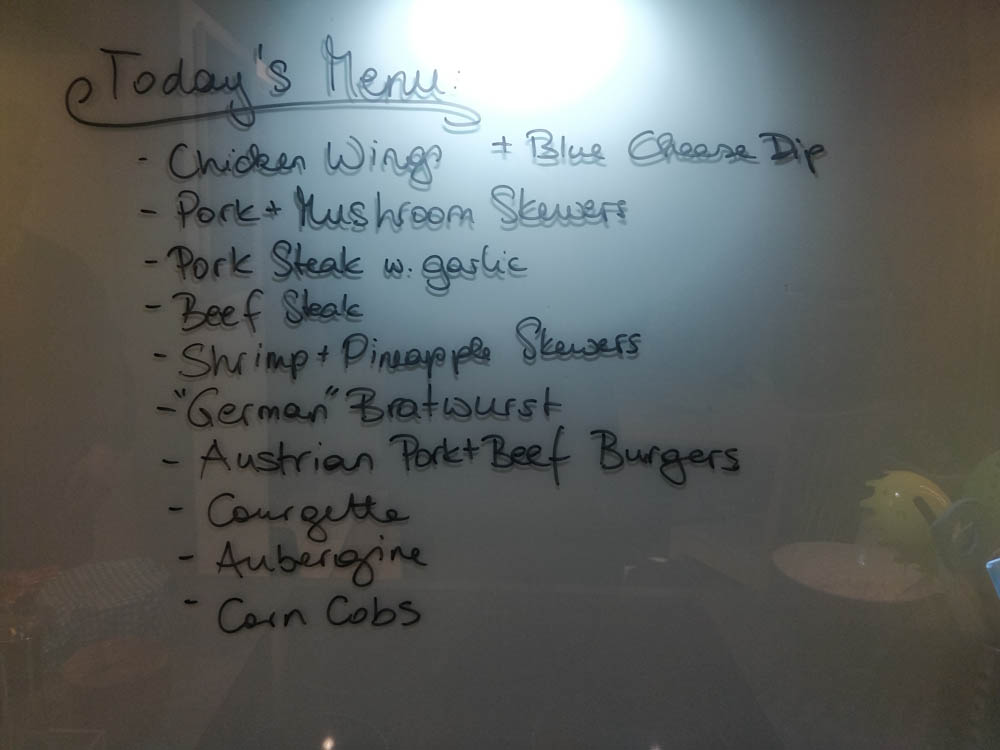 Today's Menu:
- Chicken Wings + Blue Cheese Dip
- Pork + Mushroom Skewers
- Pork Steak w. garlic
- Beef Steak
- Shrimp + Pineapple Skewers
- "German" Bratwurst
- Austrian Pork + Beef Burgers
- Courgette
- Aubergine
- Corn Cobs